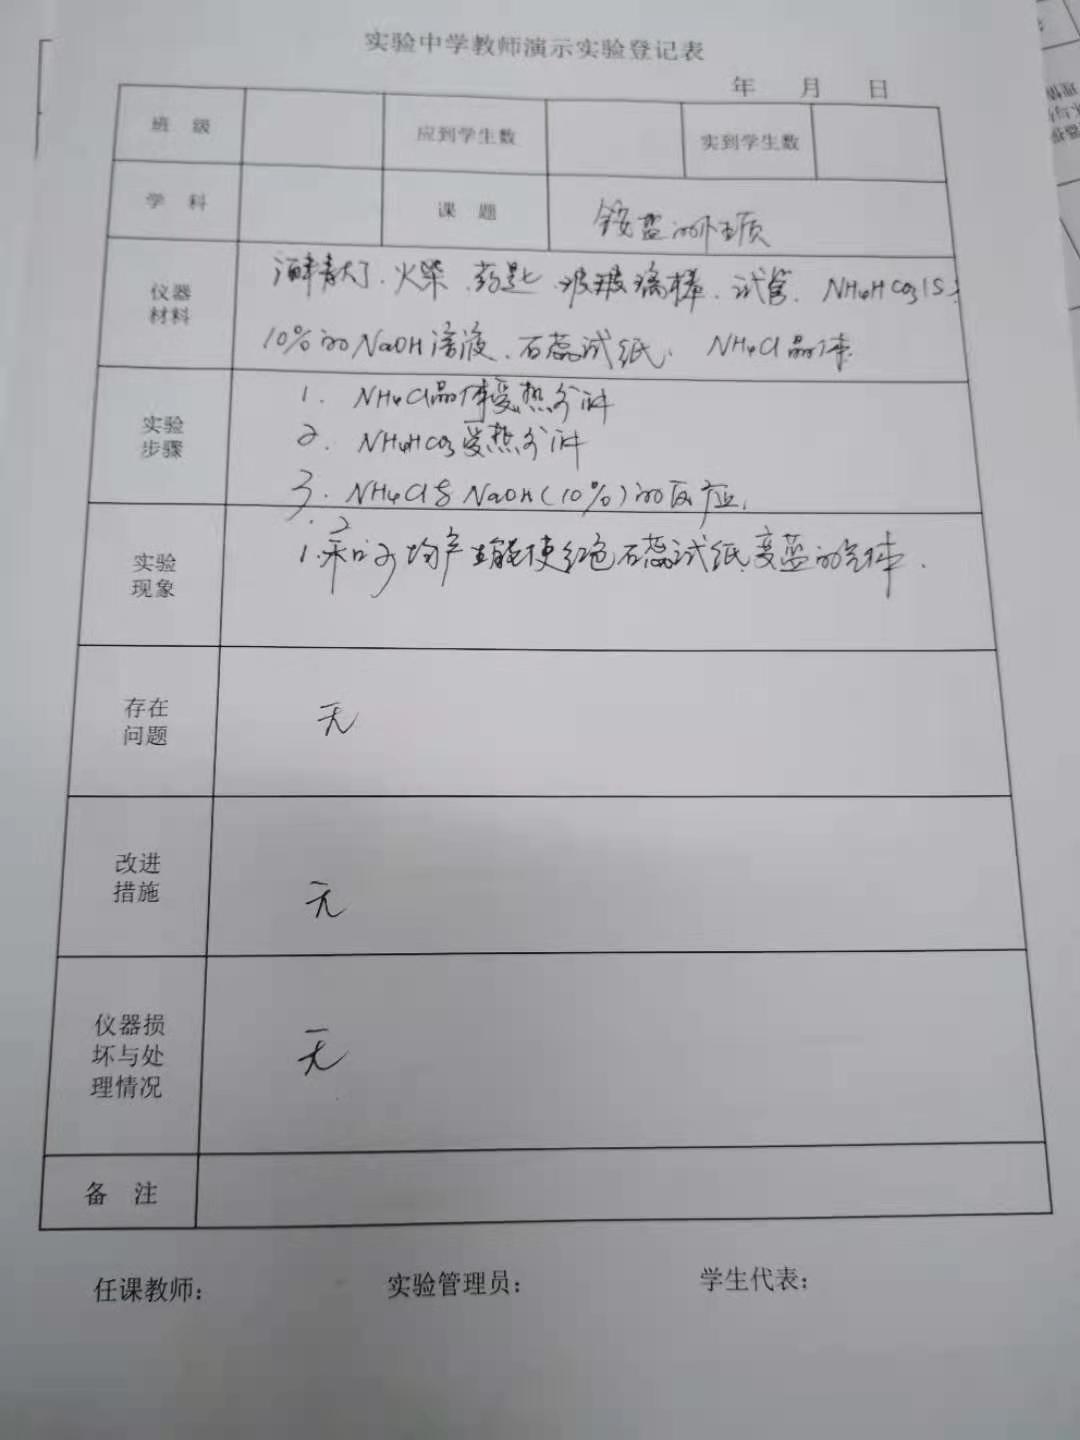 实验中学教师演示实验登记表
年 月 日
班 级 应到学生数 实到学生数
学 科 课 题 铵盐的性质
仪器材料 酒精灯、火柴、药匙、玻玻璃棒、试管、NH4HCO3(S)
10%的NaOH溶液、石蕊试纸、NH4Cl晶体
实验步骤 1. NH4Cl晶体受热分解
2. NH4HCO3受热分解
3. NH4Cl与NaOH(10%)的反应.
实验现象 1. 2 3均产生能使红色石蕊试纸变蓝的气体.
存在问题 无
改进措施 无
仪器损坏与处理情况 无
备 注
任课教师: 实验管理员: 学生代表: